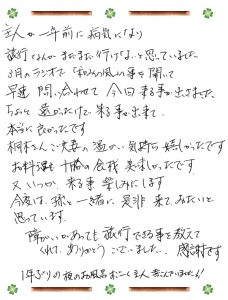 主人が一年前に病気になり
旅行なんかまだまだ行けないと思っていました
3月のラジオで「和みの風」の事を聞いて
早速問い合わせて今回来る事が出来ました。
ちょっと遠かったけど来る事が出来て
本当に良かったです
桐木さんご夫妻の温かい気持ち嬉しかったです
お料理も十勝の食材美味しかったです
又いつか来る事楽しみにします
今度は孫と一緒に是非来てみたいと
思っています。
障がいがあっても旅行できる事を教えて
くれて、ありがとうございました。感謝です
1年ぶりの夜のお風呂 主人 喜んでいました!